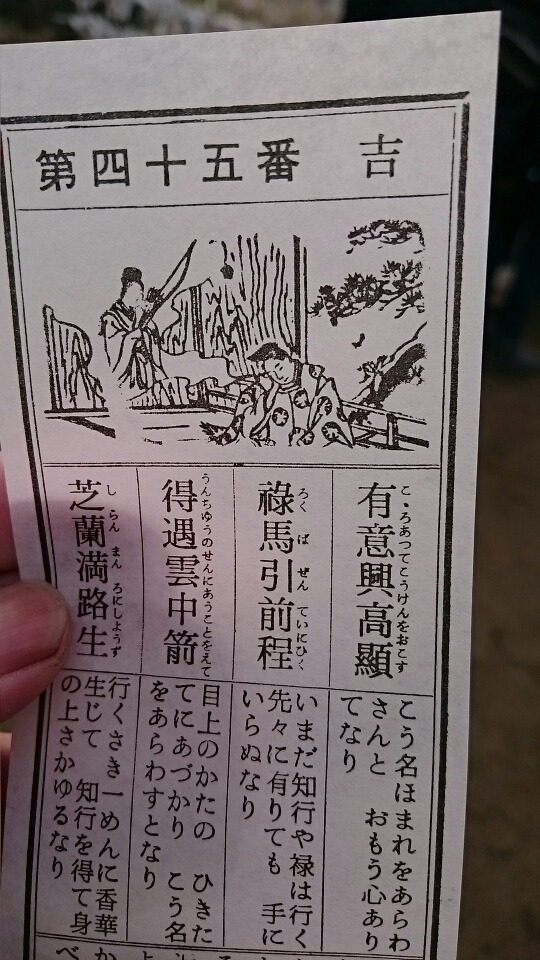 第四十五番 吉
有意興高顯
こゝろあつてこうけんをおこす
祿馬引前程
ろくばぜんていにひく
得遇雲中箭
うんちゆうのせんにあうことをえて
芝蘭満路生
しらんまんろにしようず
こう名ほまれをあらわ
さんと おもう心あり
てなり
いまだ知行や禄は行く
先々に有りても 手に
いらぬなり
目上のかたの ひきた
てにあづかり こう名
をあらわすとなり
行くさき一めんに香華
生じて 知行を得て身
の上さかゆるなり